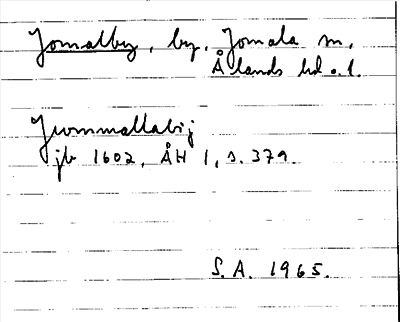 Jomalby, by, Jomala sn,
Ålands hd o. l.
Jwmmallabij
jb 1602, ÅH 1, s. 379.
S. A. 1965.